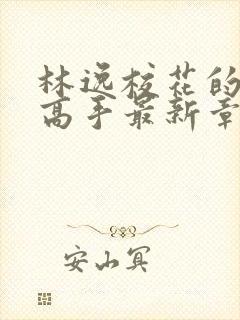 林逸校花的
高手最新章
安山冥